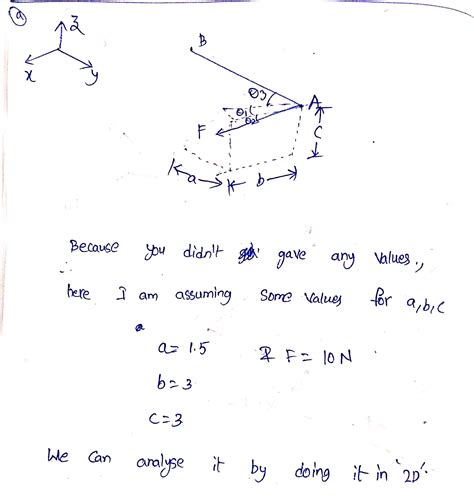 a
z
x
y
B
θ3
A
θ1
θ2
F
C
a
b
Because you didn't gave any values,
here I am assuming some values for a,b,c
a= 1.5 F= 10N
b=3
c=3
We can analyse it by doing it in '2D'.